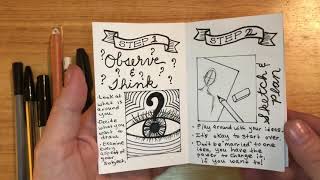 STEP 1
Observe
&
Think
- Look at
what is
around
you.
- Decide
what you
want to
draw.
- Examine
every
aspect of
your
subject.
STEP 2
Sketch &
Plan
- Play around with your ideas.
- It's okay to start over.
- Don't be "married" to one
idea, you have the
power to change it,
if you want to!